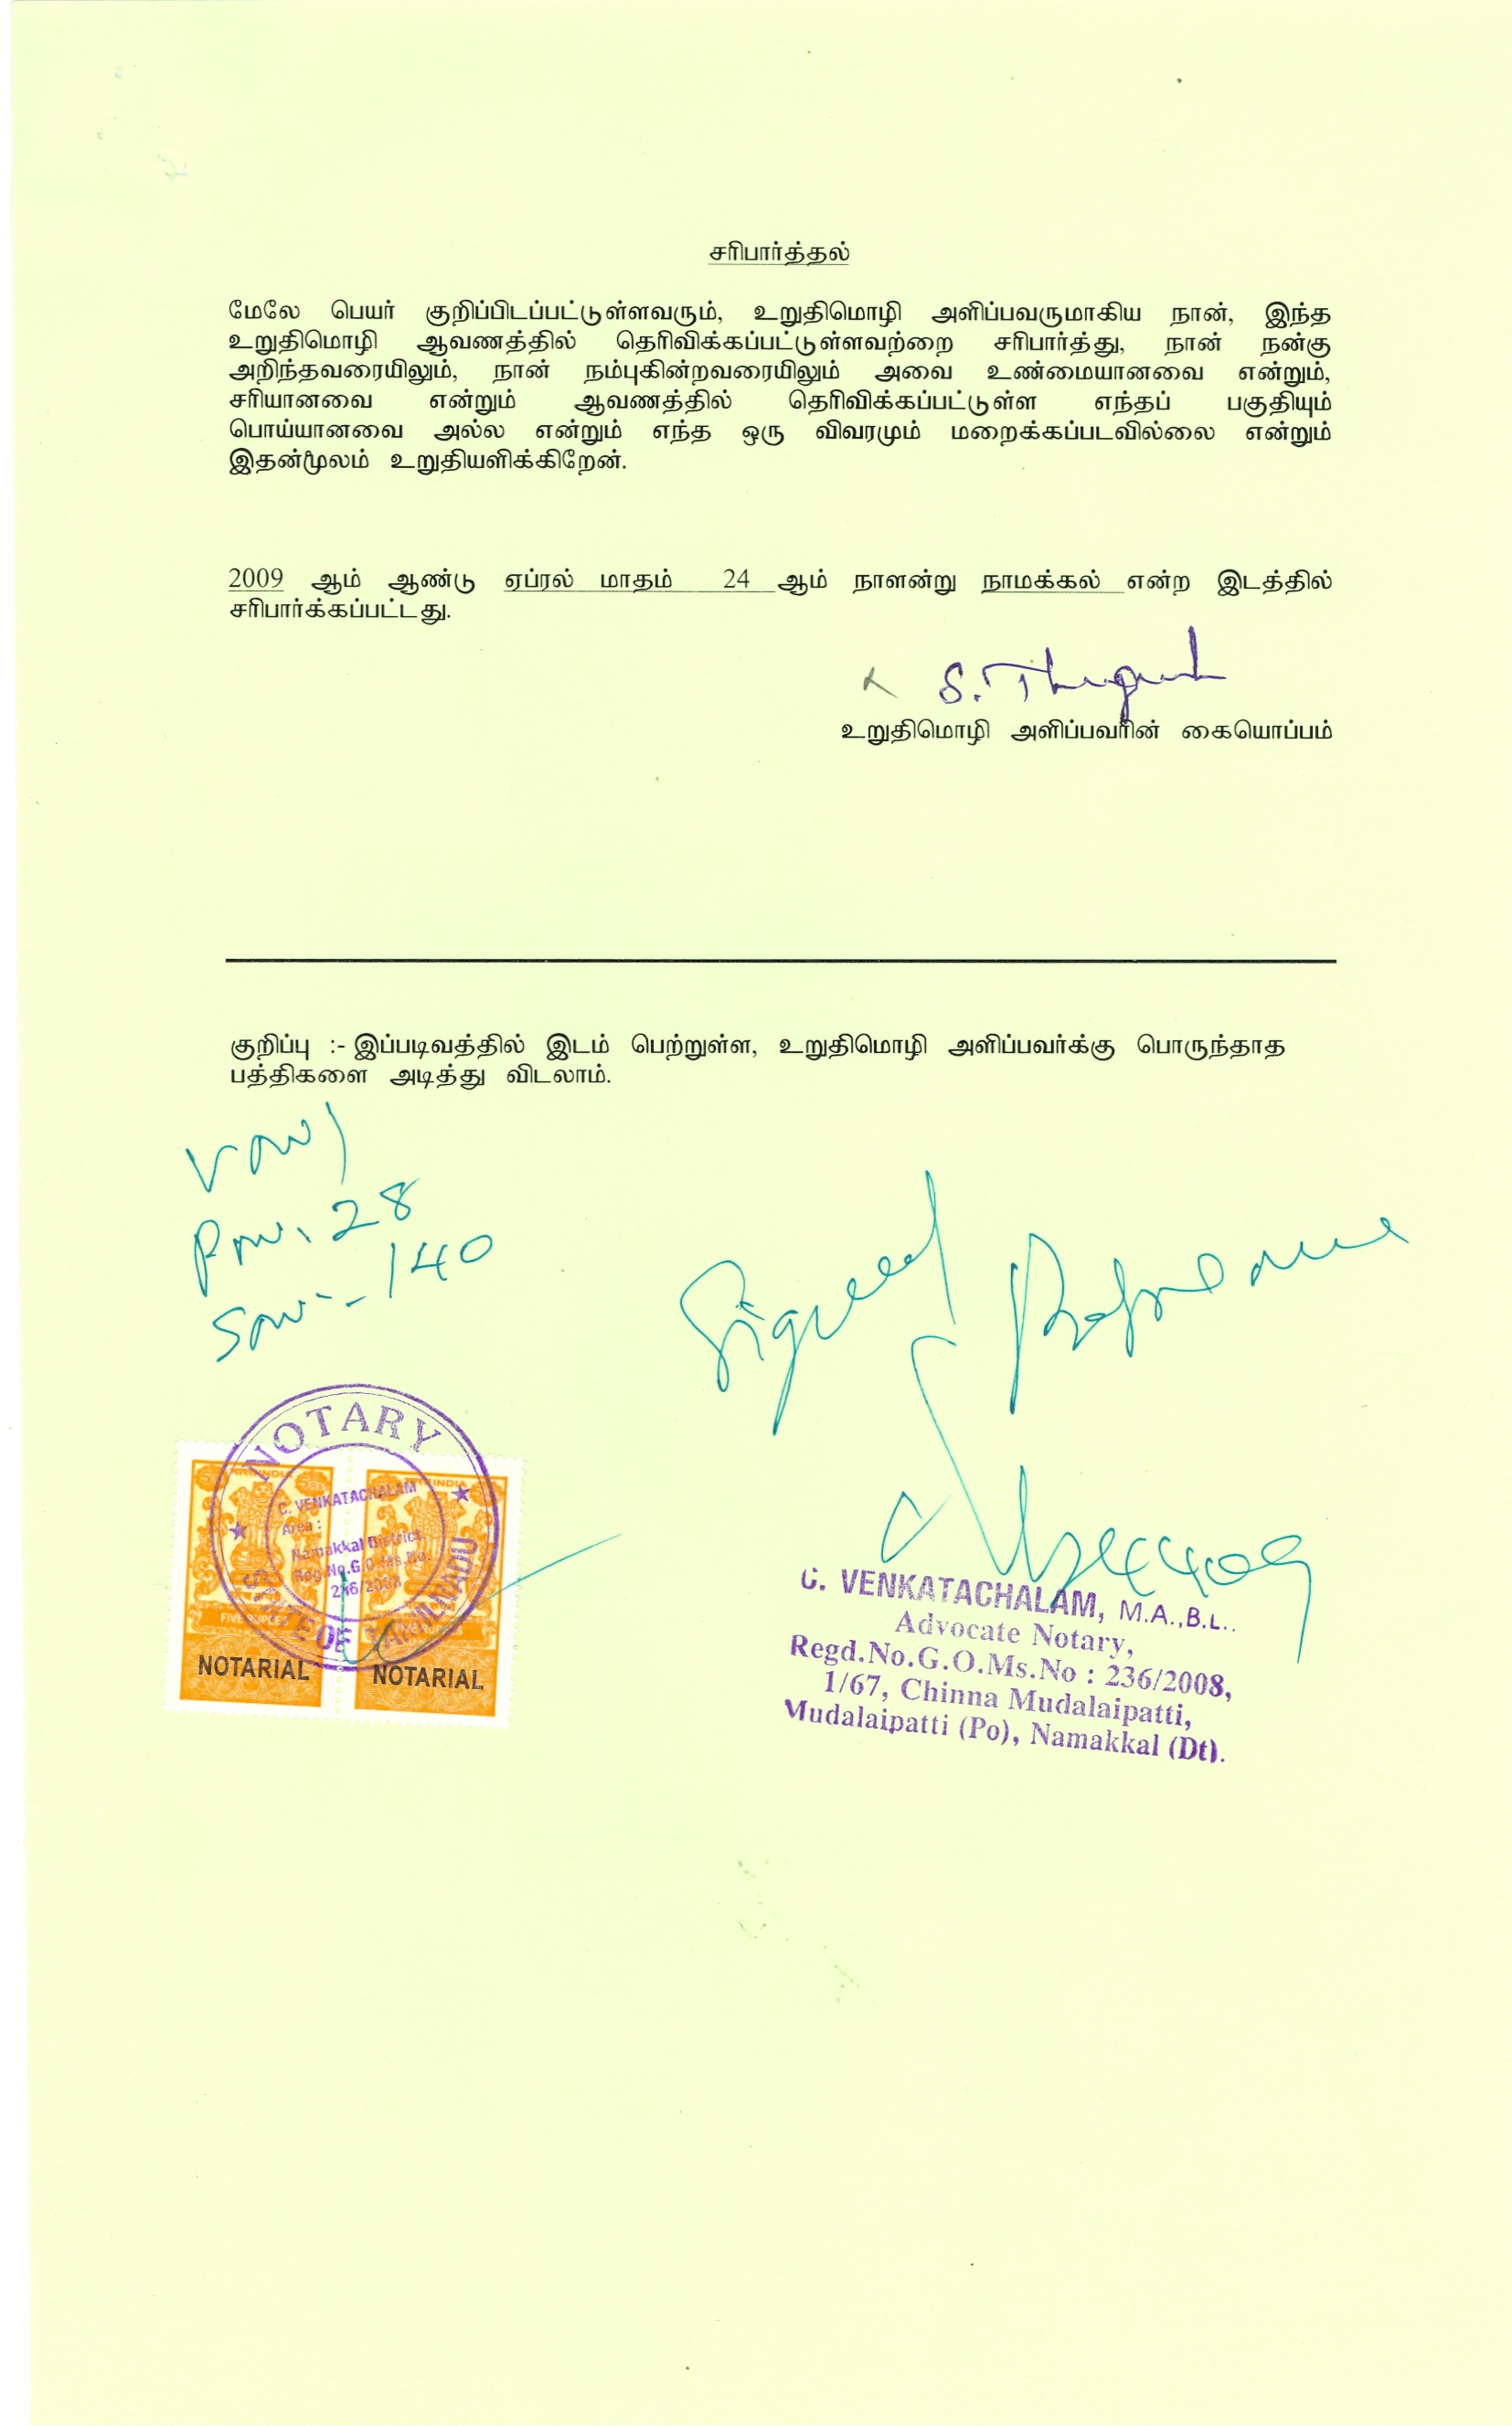 சரிபார்த்தல்
மேலே பெயர் குறிப்பிடப்பட்டுள்ளவரும், உறுதிமொழி அளிப்பவருமாகிய நான், இந்த
உறுதிமொழி ஆவணத்தில் தெரிவிக்கப்பட்டுள்ளவற்றை சரிபார்த்து, நான் நன்கு
அறிந்தவரையிலும், நான் நம்புகின்றவரையிலும் அவை உண்மையானவை என்றும்,
சரியானவை என்றும் ஆவணத்தில் தெரிவிக்கப்பட்டுள்ள எந்தப் பகுதியும்
பொய்யானவை அல்ல என்றும் எந்த ஒரு விவரமும் மறைக்கப்படவில்லை என்றும்
இதன்மூலம் உறுதியளிக்கிறேன்.
2009 ஆம் ஆண்டு ஏப்ரல் மாதம் 24 ஆம் நாளன்று நாமக்கல் என்ற இடத்தில்
சரிபார்க்கப்பட்டது.
உறுதிமொழி அளிப்பவரின் கையொப்பம்
குறிப்பு :- இப்படிவத்தில் இடம் பெற்றுள்ள, உறுதிமொழி அளிப்பவர்க்கு பொருந்தாத
பத்திகளை அடித்து விடலாம்.
28
140
Signed
NOTARY
C. VENKATACHALAM
Area :
Namakkal District
Reg.No.G.O.Ms.No.
236/2008
STATE OF TAMILNADU
FIVE RUPEES
NOTARIAL NOTARIAL
C. VENKATACHALAM, M.A.,B.L..
Advocate Notary,
Regd.No.G.O.Ms.No : 236/2008,
1/67, Chinna Mudalaipatti,
Mudalaipatti (Po), Namakkal (Dt).